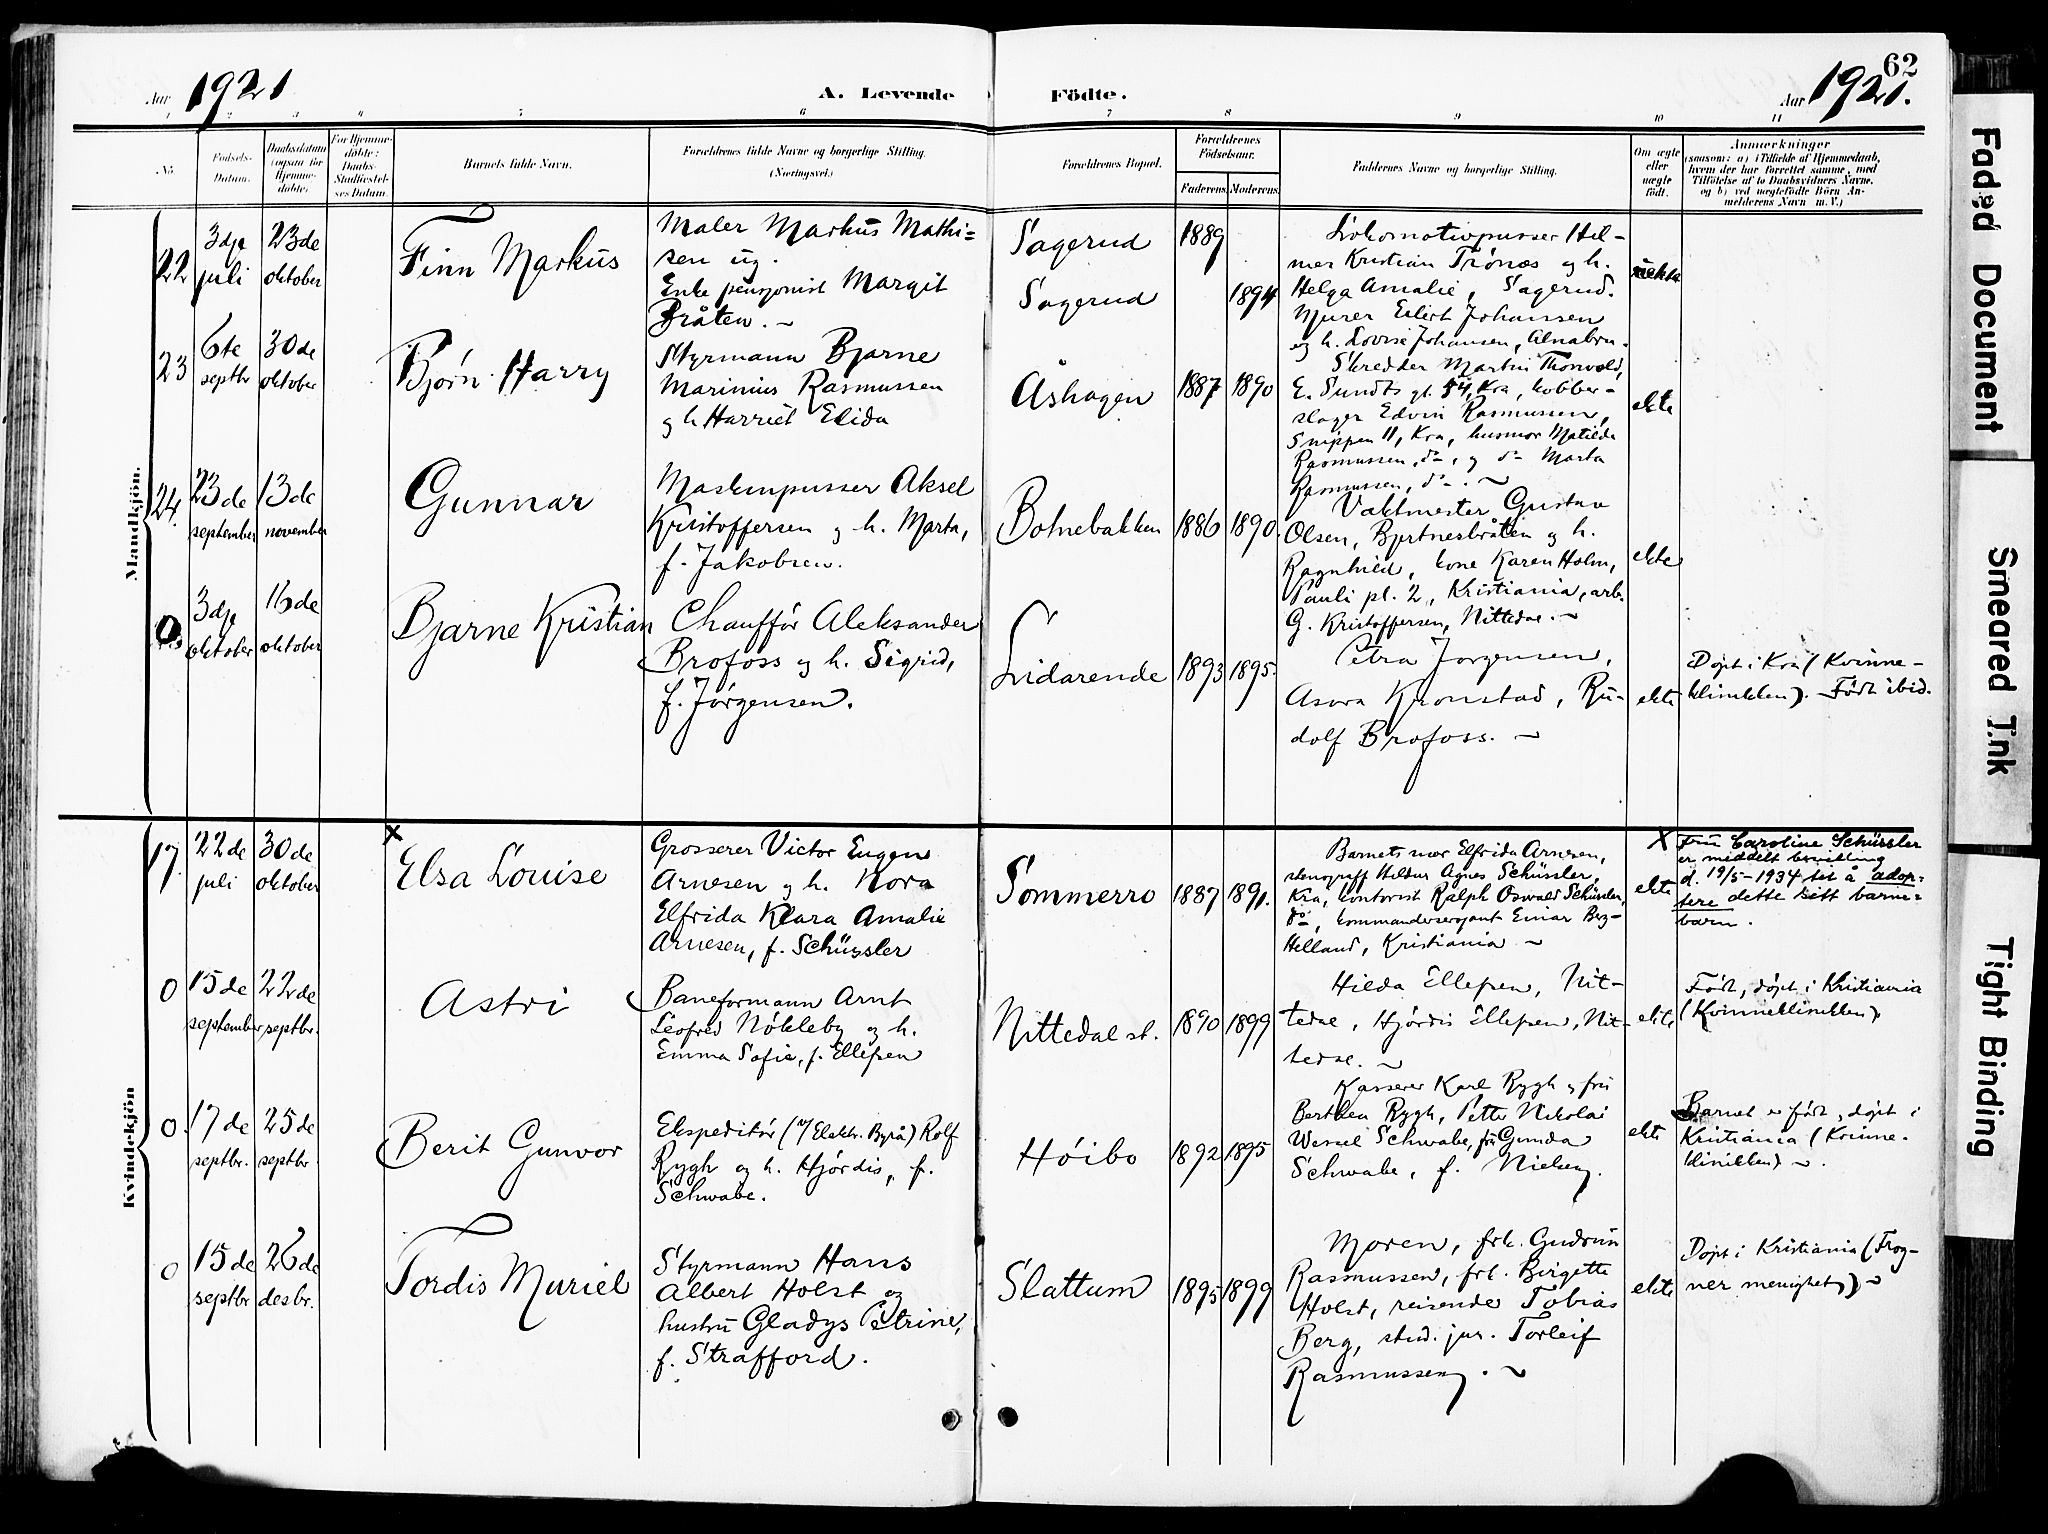 Aar 1921
A. Levende Födte.
Aar 1921.
62
1 2 3 4 5 6 7 8 9 10 11
No.
Födsels-
Datum.
Daabsdatum
(ogsaa for
Hjemme-
döbte)
For Hjemme-
döbte:
Daabs-
Stadfæstel-
ses Datum.
Barnets fulde Navn.
Forældrenes fulde Navne og borgerlige Stilling.
(Næringsvei.)
Forældrenes Bopæl.
Forældrenes
Födselsaar.
Faderens.
Moderens.
Faddernes Navne og borgerlige Stilling.
Om ægte
eller
uægte
födt.
Anmærkninger
(saasom: a) i Tilfælde af Hjemmedaab,
hvem der har forrettet samme, med
Tilföielse af to Daabsvidners Navne,
og b) ved uægtefödte Börn An-
melderens Navn m. V.)
Mandkjön.
22
3dje
juli
23de
oktober
Finn Markus
Maler Markus Mathi=
sen ug.
Enke pensjonist Margit
Bråten. -
Sagerud
Sagerud
1889
1894
Lokomotivpusser Hil-
mer Kristian Trönæs og h.
Helga Amalie, Sagerud.
Murer Eilert Johansen
og h. Lovise Johansen, Alnabru.
uekte
23
6te
septbr
30de
oktober
Bjørn Harry
Styrmann Bjarne
Marinius Rasmussen
og h Harriet Elida
Åshagen
1887
1890
Skredder Martin Thorvold,
E. Sundts gt. 54, Kra, kobber-
slager Edvin Rasmussen,
Snippen 11, Kra, husmor Matilda
Rasmussen, do, og do Marta
Rasmussen, do. -
ekte
24.
23de
september
13de
november
Gunnar
Maskinpusser Aksel
Kristoffersen og h. Marta,
f. Jakobsen.
Botnebakken
1886
1890.
Vaktmester Gustav
Olsen, Bjertnesbråten og h.
Ragnhild, kone Karen Holm,
Pauli pl. 2, Kristiania, arb.
G. Kristoffersen, Nittedal. -
ekte
0
3dje
oktober
16de
oktober
Bjarne Kristian
Chauffør Aleksander
Brofoss og h. Sigrid,
f. Jørgensen.
Lidarende
1893
1895.
Petra Jørgensen,
Asora Kronstad, Ru-
dolf Brofoss. -
ekte
Døpt i Kra (Kvinne-
klinikken). - Født ibid.
Kvindekjön
17.
22de
juli
30de
oktober
x
Elsa Louise
Grosserer Victor Eugen
Arnesen og h. Nora
Elfrida Klara Amalie
Arnesen, f. Schüssler
Sommerro
1887
1891.
Barnets mor Elfrida Arnesen,
stenograff Heldur Agnes Schüssler,
Kra, kontorist Ralph Oswald Schüssler,
do, kommandersergeant Einar Berg-
Helland, Kristiania -
ekte
x Fru Caroline Schüssler
er meddelt bevilling
d. 19/5-1934 til å adop-
tere dette sitt barne-
barn.
0
15de
september
22de
septbr.
Astri
Baneformann Arnt
Leofred Nökleby og h.
Emma Sofie, f. Ellefsen
Nittedal st.
1890
1899
Hilda Ellefsen, Nit-
tedal, Hjördis Ellefsen, Nit-
tedal. -
ekte
Født, døpt i Kristiania
(Kvinneklinikken)
0.
17de
septbr.
25de
septbr.
Berit Gunvor
Ekspeditør (v/ Elektr. Byrå) Rolf
Rygh og h. Hjördis, f.
Schwabe.
Höibo
1892
1895
Kasserer Karl Rygh og fru
Berthea Rygh, Petter Nikolai
Wessel Schwabe, fru Gunda
Schwabe, f. Nielsen.
ekte
Barnet er født, døpt i
Kristiania (Kvinne-
klinikken) -.
0
15de
septbr
26de
desbr.
Tordis Muriel
Styrmann Hans
Albert Holst og
hustru Gladys Petrine,
f. Strafford.
Slattum
1895
1899
Moren, frk. Gudrun
Rasmussen, frk. Birgette
Holst, reisende Tobias
Berg, stud. jur. Torleif
Rasmussen. -
ekte
Døpt i Kristiania (Frog-
ner menighet) -
Faded Document
Smeared Ink
Tight Binding